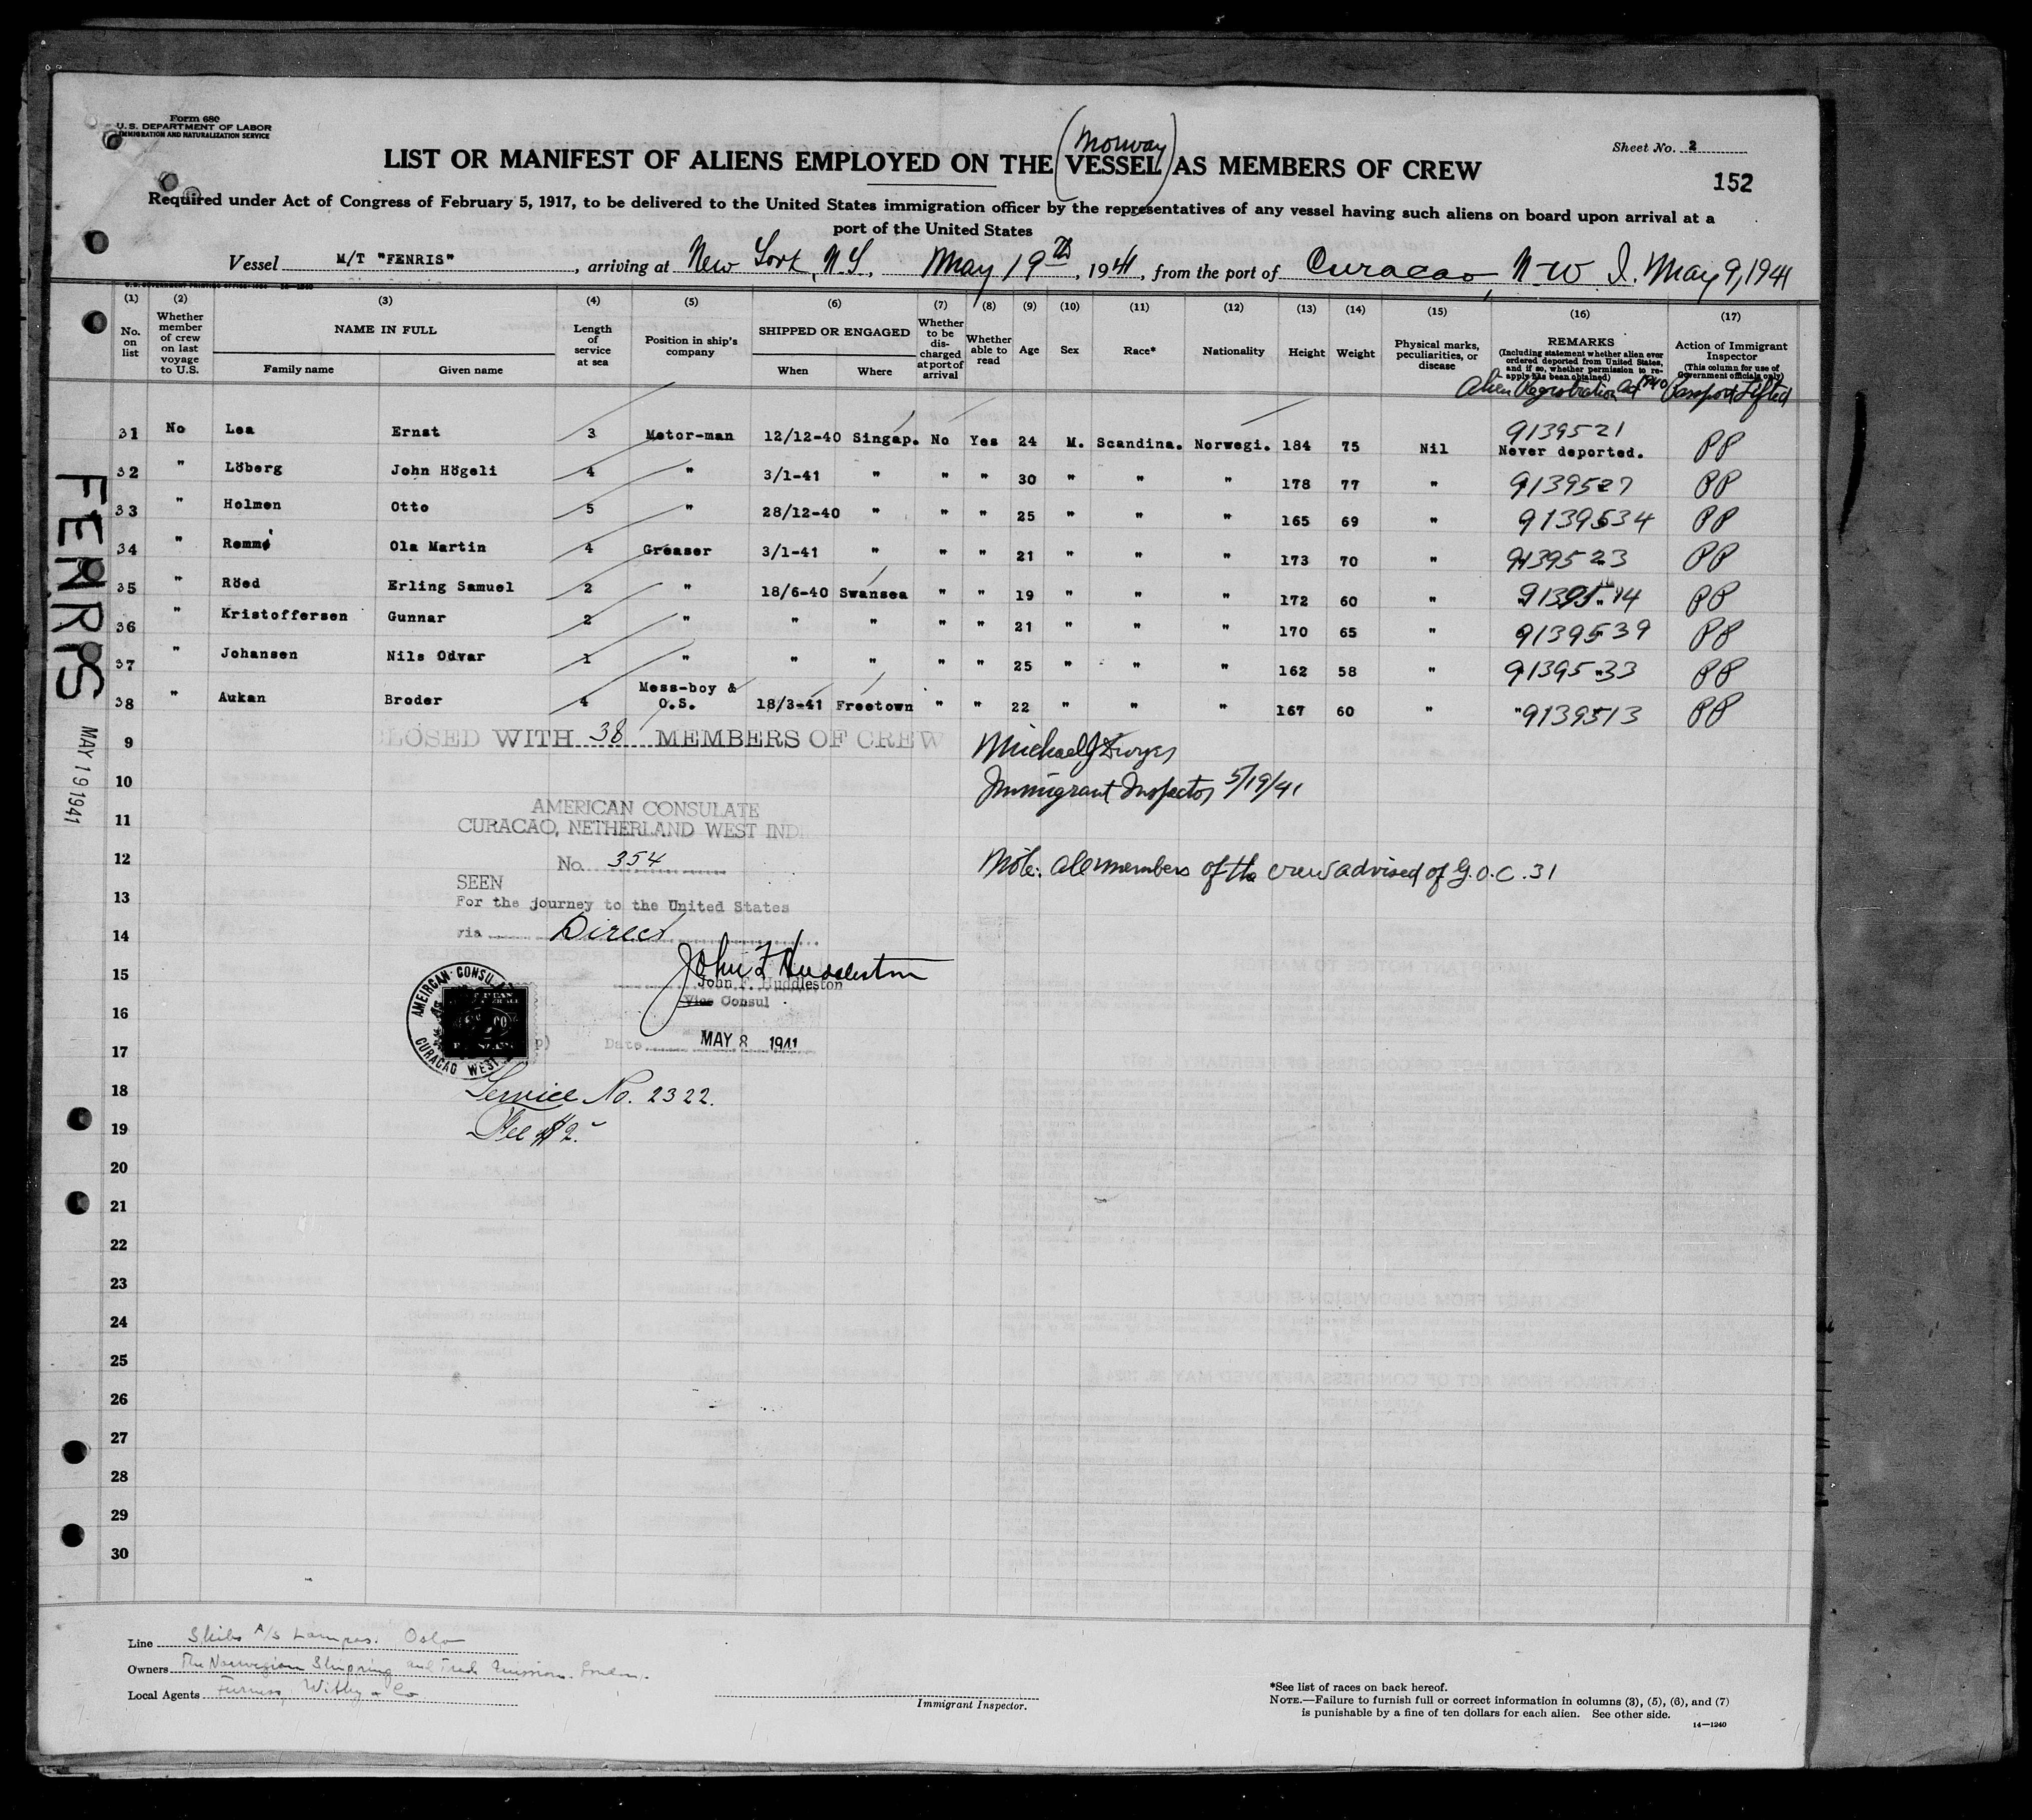 Form 680
U.S. DEPARTMENT OF LABOR
IMMIGRATION AND NATURALIZATION SERVICE
Sheet No. 2
152
(Norway)
LIST OR MANIFEST OF ALIENS EMPLOYED ON THE VESSEL AS MEMBERS OF CREW
Required under Act of Congress of February 5, 1917, to be delivered to the United States immigration officer by the representatives of any vessel having such aliens on board upon arrival at a
port of the United States
Vessel M/T "FENRIS", arriving at New York, N.Y., May 19th, 1941, from the port of Curacao, N-W. I. May 9, 1941
(1) (2) (3) (4) (5) (6) (7) (8) (9) (10) (11) (12) (13) (14) (15) (16) (17)
No. on list
Whether member of crew on last voyage to U.S.
NAME IN FULL
Family name Given name
Length of service at sea
Position in ship's company
SHIPPED OR ENGAGED
When Where
Whether to be discharged at port of arrival
Whether able to read
Age
Sex
Race*
Nationality
Height
Weight
Physical marks, peculiarities, or disease
REMARKS
(Including statement whether alien ever ordered deported from United States, and if so, whether permission to reapply has been obtained)
Action of Immigrant Inspector
(This column for use of Government officials only)
Alien Registration Act 1940 Passport Lifted
31 No Lea Ernst 3 Motor-man 12/12-40 Singap. No Yes 24 M. Scandina. Norwegi. 184 75 Nil 9139521 Never deported. PP
32 " Löberg John Högeli 4 " 3/1-41 " " " 30 " " " 178 77 " 9139527 PP
33 " Holmen Otto 5 " 28/12-40 " " " 25 " " " 165 69 " 9139534 PP
34 " Remmö Ola Martin 4 Greaser 3/1-41 " " " 21 " " " 173 70 " 9139523 PP
35 " Röed Erling Samuel 2 " 18/6-40 Swansea " " 19 " " " 172 60 " PP
36 " Kristoffersen Gunnar 2 " " " " " 21 " " " 170 65 " 9139539 PP
37 " Johansen Nils Odvar 1 " " " " " 25 " " " 162 58 " 9139533 PP
38 " Aukan Broder 4 Mess-boy & O.S. 18/3-41 Freetown " " 22 " " " 167 60 " " 9139513 PP
CLOSED WITH 38 MEMBERS OF CREW
Michael J Dwyer
Immigrant Inspector 5/19/41
9
10
11
12
13
14
15
16
17
18
19
20
21
22
23
24
25
26
27
28
29
30
AMERICAN CONSULATE
CURACAO, NETHERLAND WEST INDI
No. 354
Note: all members of the crew advised of G.O.C. 31
SEEN
For the journey to the United States
via Direct
John F Huddleston
John F. Huddleston
Vice Consul
AMERICAN CONSULATE
CURACAO WEST
Date MAY 8 1941
Service No. 2322.
Fee $2.-
FENRIS
MAY 19 1941
Line Skibs A/s Lampas. Oslo
Owners The Norwegian Shipping and Trade Mission. London.
Local Agents Furness, Withy & Co
Immigrant Inspector.
*See list of races on back hereof.
NOTE.—Failure to furnish full or correct information in columns (3), (5), (6), and (7)
is punishable by a fine of ten dollars for each alien. See other side.
14—1240